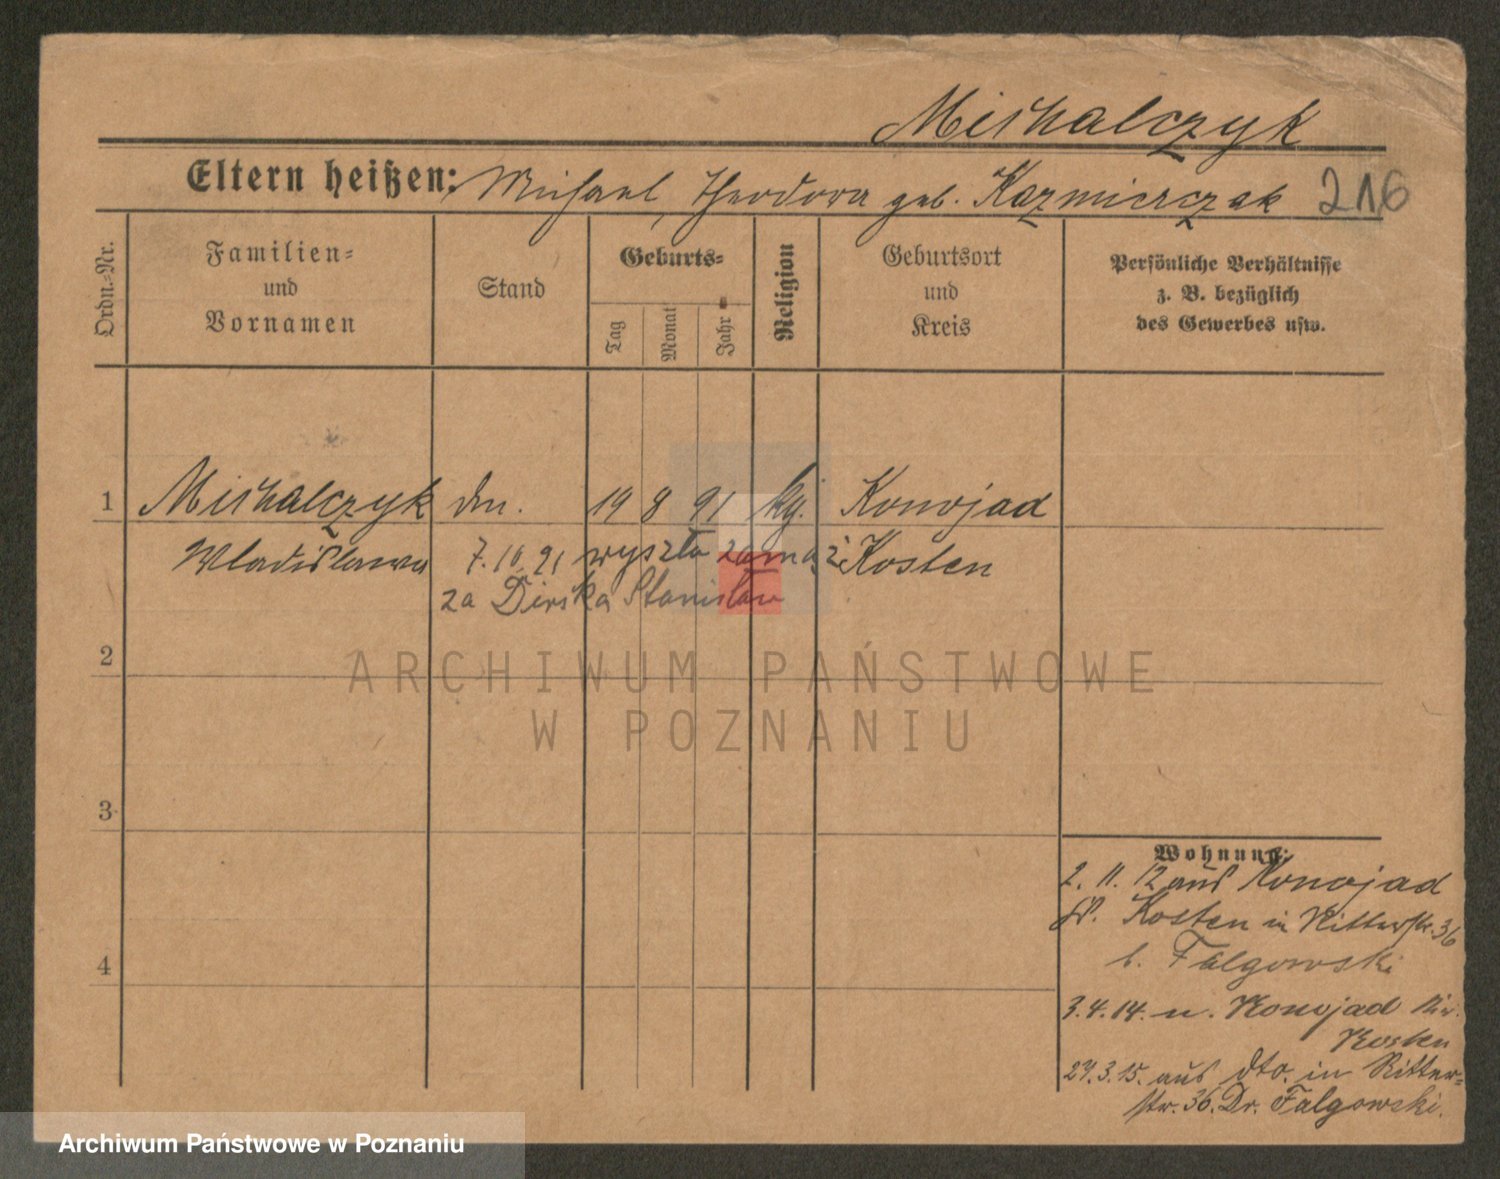 Michalczyk
Eltern heißen: Michael, Theodora geb. Kazmierczak 216
Ordn.-Nr.
Familien-
und
Vornamen
Stand
Geburts-
Tag
Monat
Jahr
Religion
Geburtsort
und
Kreis
Persönliche Verhältnisse
z. B. bezüglich
des Gewerbes usw.
1 Michalczyk 19 8 91 Konojad
Wladislawa 7.10.21 wyszła zamąż Kosten
za Stanisław
2
ARCHIWUM PAŃSTWOWE
W POZNANIU
3
4
Wohnung:
2. 11. 12 aus Konojad
Kosten in Ritterstr. 36
b. Falgowski
3.4.14. n. Konojad
Kosten
27.3.15. aus dto. in Ritter-
str. 36. Dr. Falgowski.
Archiwum Państwowe w Poznaniu